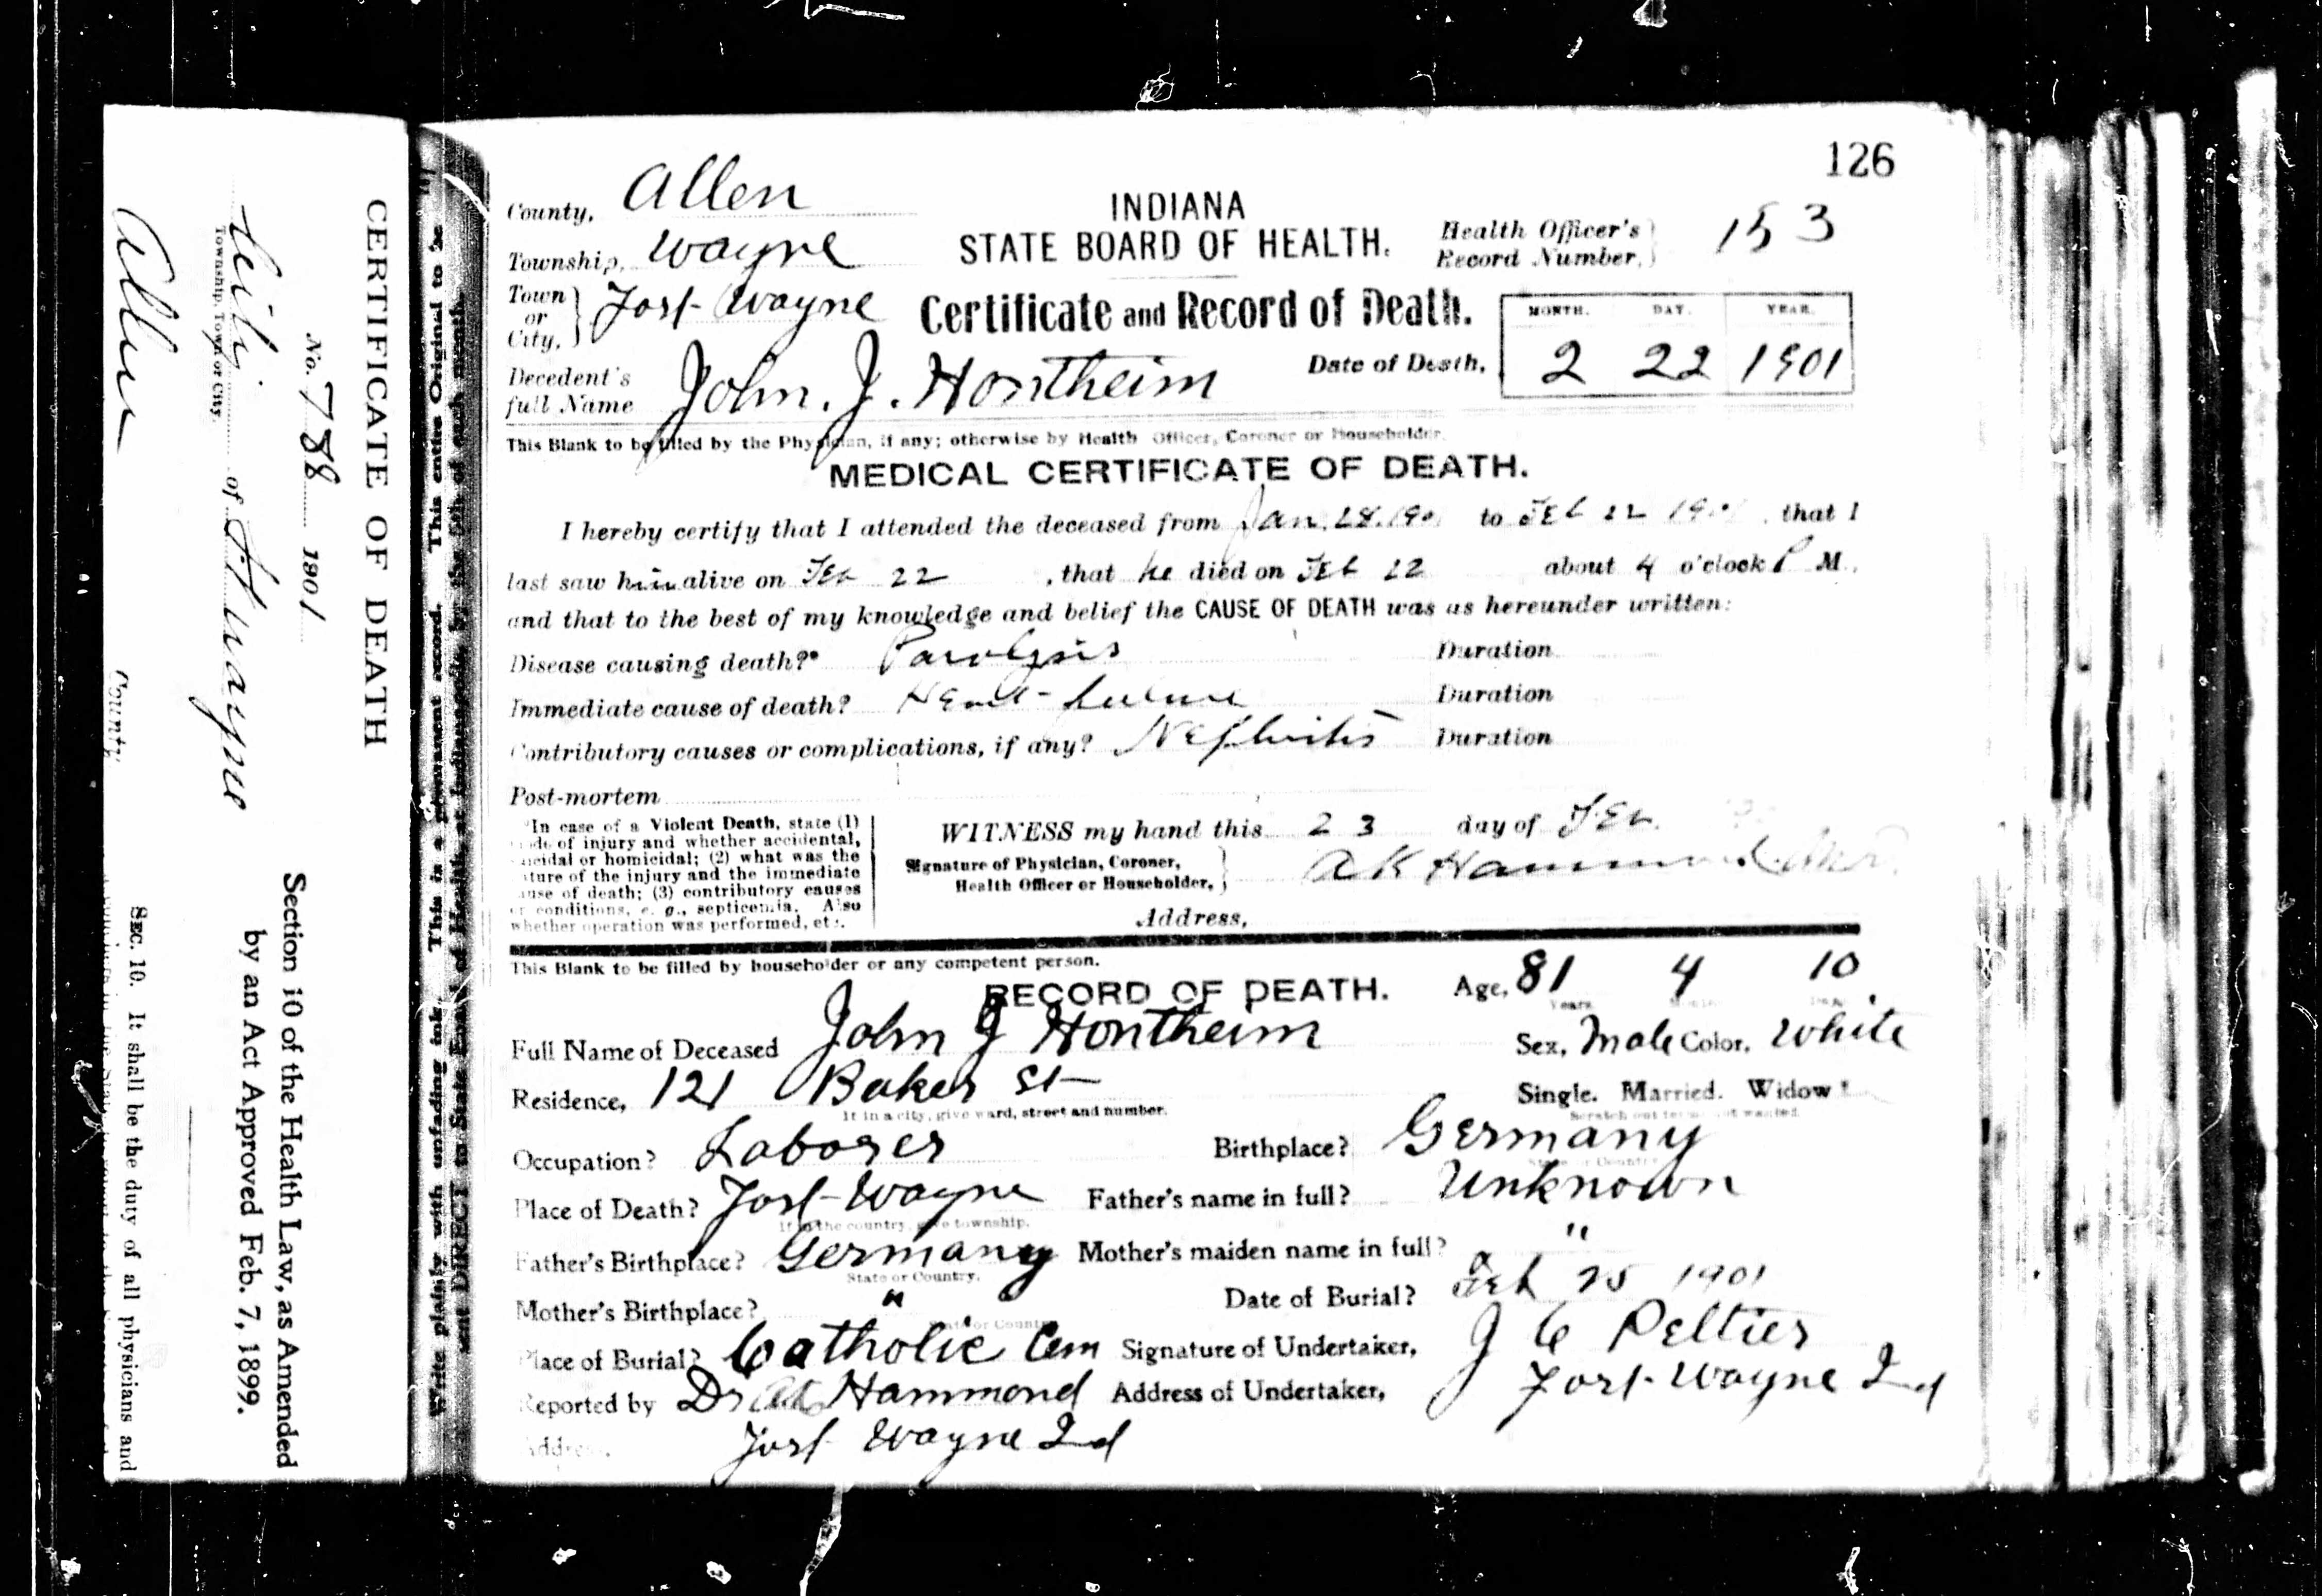 126
County, Allen
INDIANA
Township, Wayne
STATE BOARD OF HEALTH.
Health Officer's Record Number, 153
Town or City, Fort Wayne
Certificate and Record of Death.
MONTH. DAY. YEAR.
Decedent's full Name John. J. Hontheim
Date of Death, 2 22 1901
This Blank to be filled by the Physician, if any; otherwise by Health Officer, Coroner or Householder.
MEDICAL CERTIFICATE OF DEATH.
I hereby certify that I attended the deceased from Jan. 28. 190 to Feb 22 190 , that I
last saw him alive on Feb 22 , that he died on Feb 22 about 4 o'clock P M.,
and that to the best of my knowledge and belief the CAUSE OF DEATH was as hereunder written:
Disease causing death?* Paralysis Duration
Immediate cause of death? Heart failure Duration
Contributory causes or complications, if any? Nephritis Duration
Post-mortem
*In case of a Violent Death, state (1)
of injury and whether accidental,
suicidal or homicidal; (2) what was the
nature of the injury and the immediate
cause of death; (3) contributory causes
or conditions, e. g., septicemia. Also
whether operation was performed, etc.
WITNESS my hand this 23 day of Feb.
Signature of Physician, Coroner,
Health Officer or Householder, A K Hammond
Address,
This Blank to be filled by householder or any competent person.
RECORD OF DEATH.
Age, 81 4 10
Years
Full Name of Deceased John J Hontheim
Sex, Male Color, White
Residence, 121 Baker St
If in a city, give ward, street and number.
Single. Married. Widow
Scratch out terms not wanted.
Occupation? Laborer
Birthplace? Germany
State or Country
Place of Death? Fort Wayne
If in the country, give township.
Father's name in full? Unknown
Father's Birthplace? Germany
State or Country.
Mother's maiden name in full? "
Mother's Birthplace? "
State or Country
Date of Burial? Feb 25 1901
Place of Burial? Catholic Cem
Signature of Undertaker, J C Peltier
Reported by Dr Hammond
Address of Undertaker, Fort Wayne Ind
Address, Fort Wayne Ind
CERTIFICATE OF DEATH
No. 788 1901
City of Ft Wayne
Township, Town or City,
Allen County
Section 10 of the Health Law, as Amended
by an Act Approved Feb. 7, 1899.
SEC. 10. It shall be the duty of all physicians and